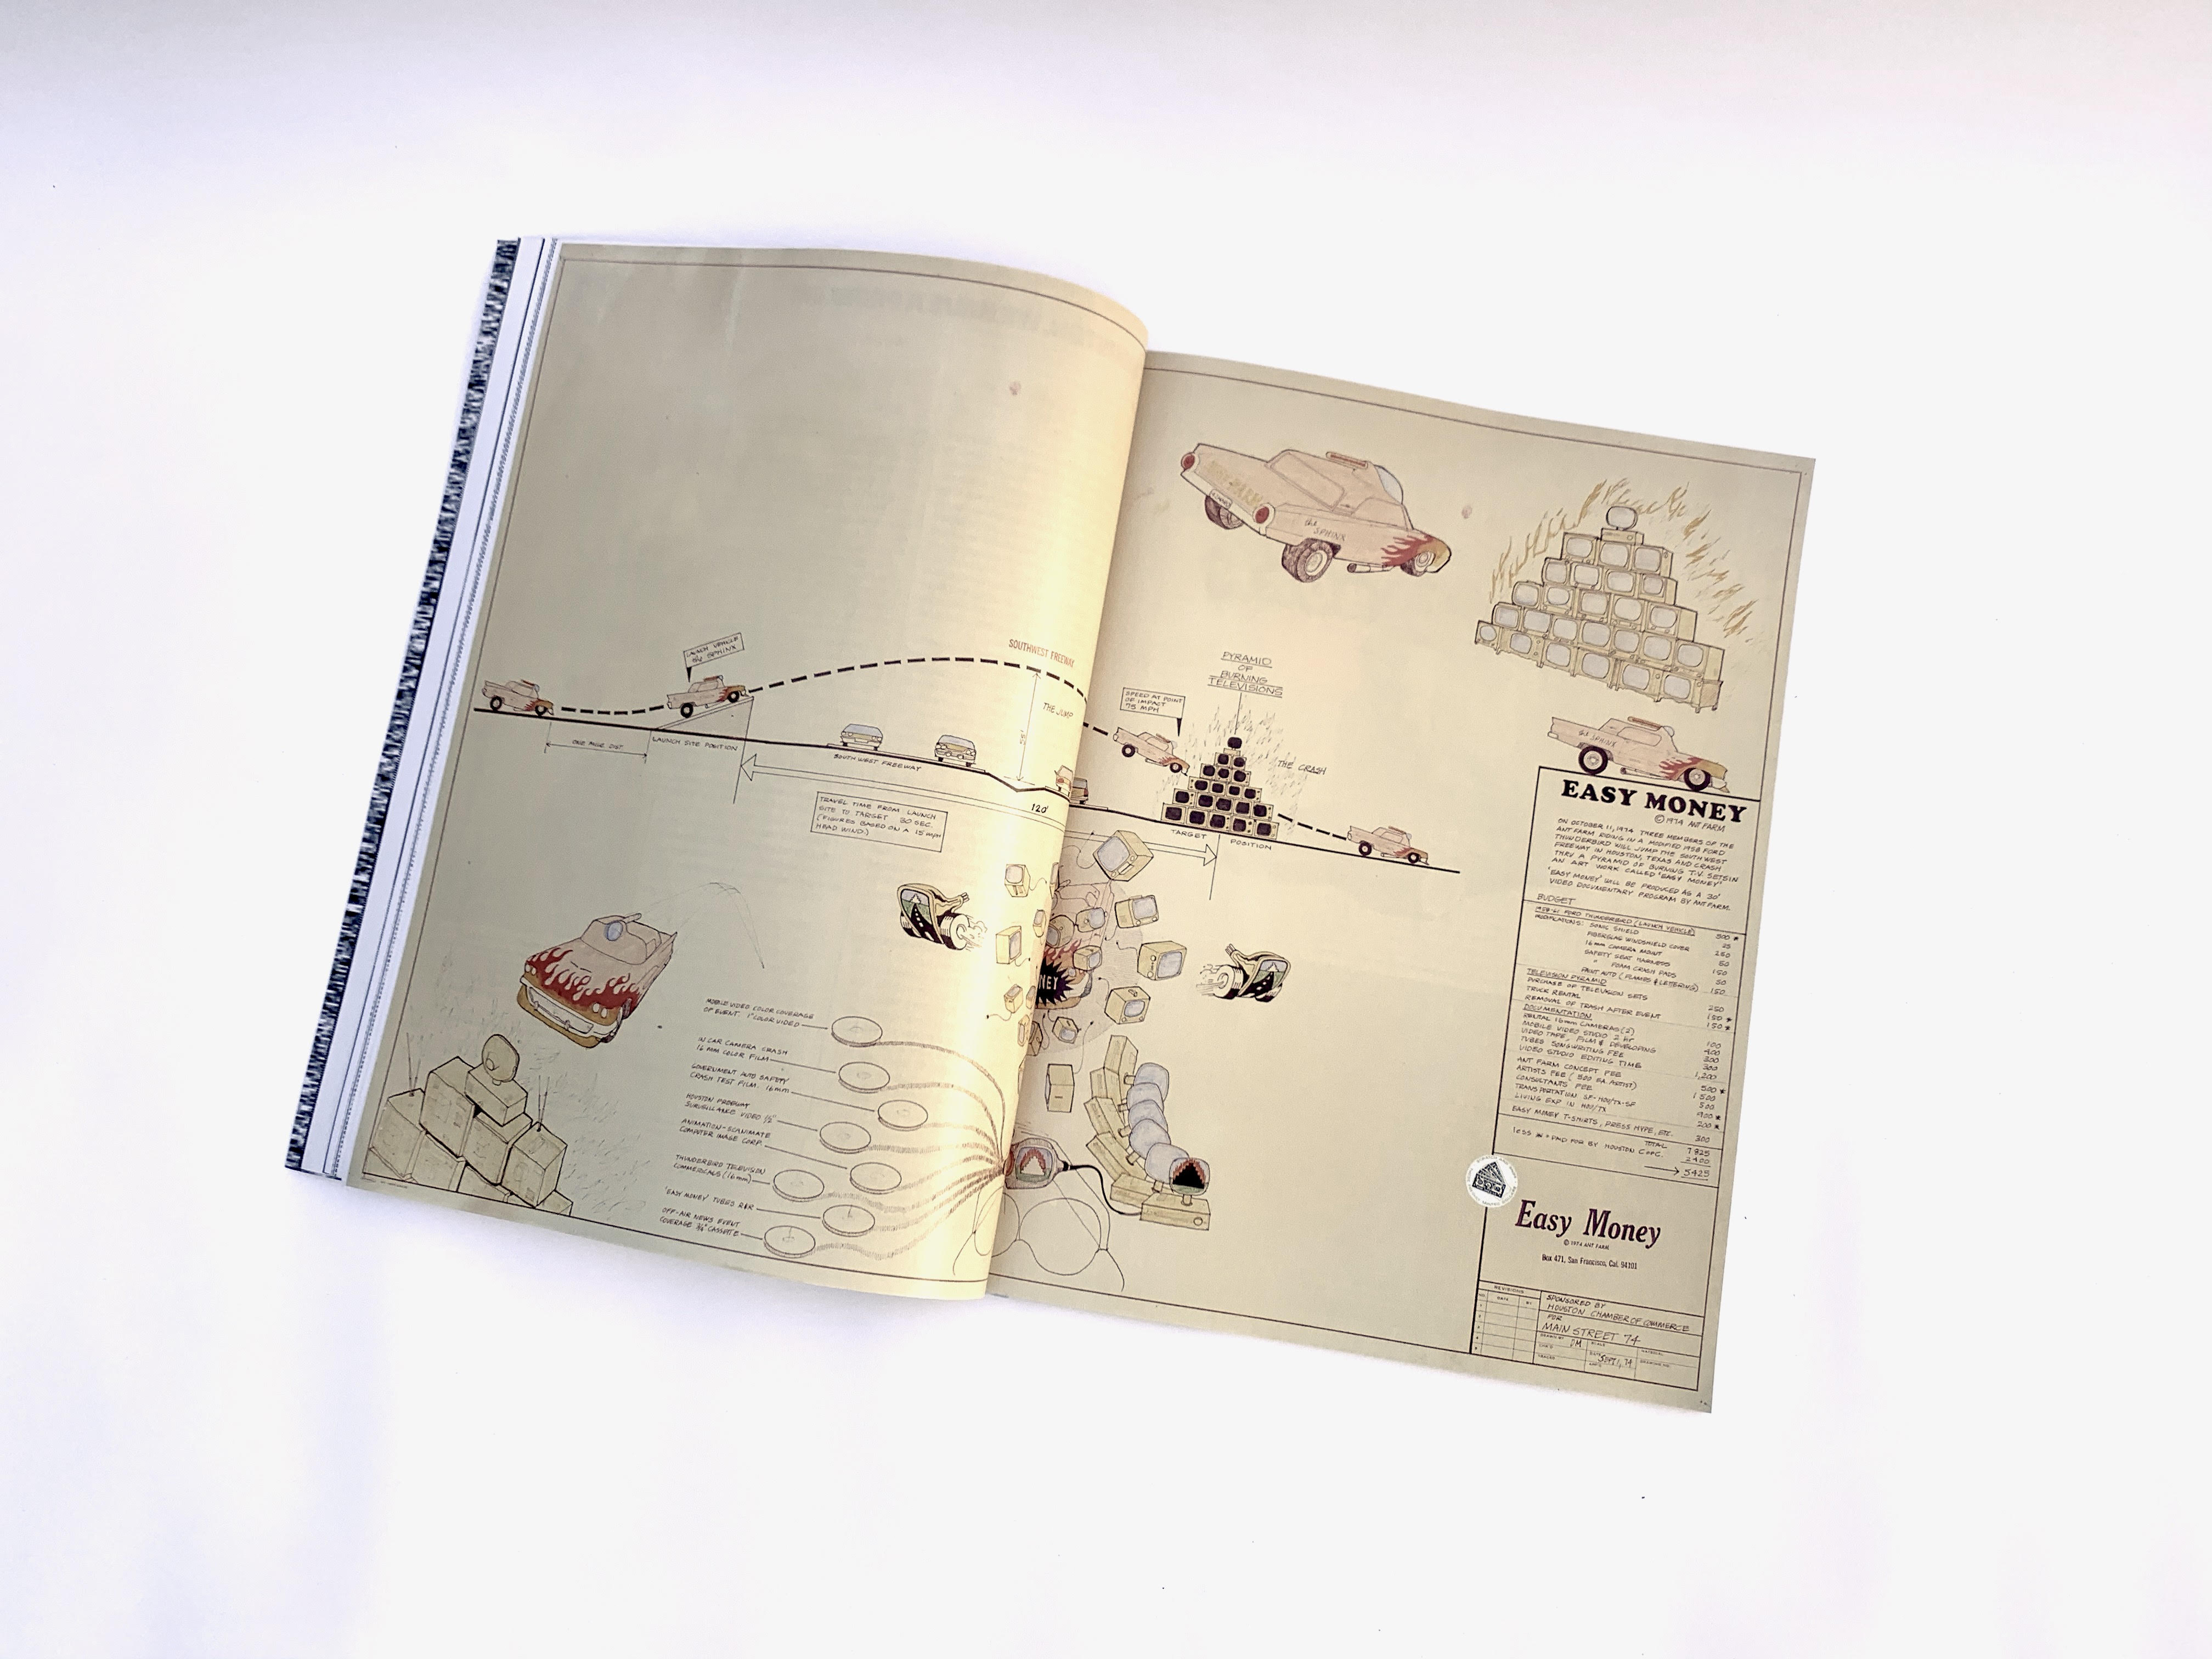 LAUNCH VEHICLE
SPHINX
SOUTHWEST FREEWAY
THE JUMP
ONE MGR. DIST.
LAUNCH SITE POSITION
SOUTHWEST FREEWAY
120'
TRAVEL TIME FROM LAUNCH
SITE TO TARGET 30 SEC.
(FIGURES BASED ON A 15 MPH
HEAD WIND.)
MOBILE VIDEO COLOR COVERAGE
OF EVENT. 1" COLOR VIDEO
IN CAR CAMERA CRASH
16 MM COLOR FILM
GOVERNMENT AUTO SAFETY
CRASH TEST FILM. 16mm
HOUSTON FREEWAY
SURVEILLANCE VIDEO ½"
ANIMATION-SCANIMATE
COMPUTER IMAGE CORP.
THUNDERBIRD TELEVISION
COMMERCIALS (16mm)
'EASY MONEY' TUBES R&R
OFF-AIR NEWS EVENT
COVERAGE ¾" CASSETTE
ANT FARM
the SPHINX
PYRAMID
OF
BURNING
TELEVISIONS
SPEED AT POINT
OF IMPACT
75 MPH
THE CRASH
TARGET POSITION
NEY
the SPHINX
EASY MONEY
© 1974 ANT FARM
ON OCTOBER 11, 1974 THREE MEMBERS OF THE
ANT FARM RIDING IN A MODIFIED 1958 FORD
THUNDERBIRD WILL JUMP THE SOUTHWEST
FREEWAY IN HOUSTON, TEXAS AND CRASH
THRU A PYRAMID OF BURNING T.V. SETS IN
AN ART WORK CALLED 'EASY MONEY'
'EASY MONEY' WILL BE PRODUCED AS A 30'
VIDEO DOCUMENTARY PROGRAM BY ANT FARM.
BUDGET
FORD THUNDERBIRD (LAUNCH VEHICLE) 500 *
MODIFICATIONS: SONIC SHIELD 25
FIBERGLAS WINDSHIELD COVER 250
16mm CAMERA MOUNT 50
SAFETY SEAT HARNESS 150
" FOAM CRASH PADS 50
PAINT AUTO (FLAMES & LETTERING) 150
TELEVISION PYRAMID
PURCHASE OF TELEVISION SETS 250
TRUCK RENTAL 150 *
REMOVAL OF TRASH AFTER EVENT 150 *
DOCUMENTATION
RENTAL 16mm CAMERAS (2) 100
MOBILE VIDEO STUDIO 2 HR 400
VIDEO TAPE, FILM & DEVELOPING 300
TUBES SONGWRITING FEE 300
VIDEO STUDIO EDITING TIME 1,200
ANT FARM CONCEPT FEE 500 *
ARTISTS FEE (500 EA. ARTIST) 1500
CONSULTANTS FEE 500
TRANSPORTATION SF-HOU/TX-SF 900 *
LIVING EXP IN HOU/TX 200 *
EASY MONEY T-SHIRTS, PRESS HYPE, ETC. 300
TOTAL 7825
less * PAID FOR BY HOUSTON C of C. 2400
5425
Easy Money
© 1974 ANT FARM
Box 471, San Francisco, Cal. 94101
REVISIONS
DATE BY
SPONSORED BY
HOUSTON CHAMBER OF COMMERCE
FOR
MAIN STREET 74
DRAWN BY SCALE MATERIAL
DATE SEPT 1, 74 DRAWING NO.
TRACED